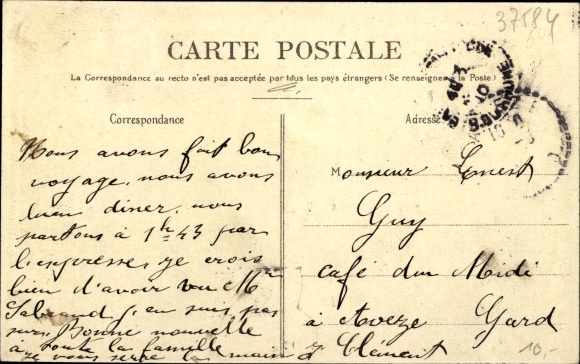 37584
CARTE POSTALE
La Correspondance au recto n'est pas acceptée par tous les pays étrangers (Se renseigner à la Poste)
Correspondance
Adresse
Nous avons fait bon
voyage, nous avons
bien diner, nous
partons à 1h 43 par
l'express, je crois
bien d'avoir vu Mr
Sabrand j'en suis pas
sur, Bonne nouvelle
à toute la famille
je vous serre la main
Clément
Monsieur Ernest
Guy
café du Midi
à Aveze Gard
10,-